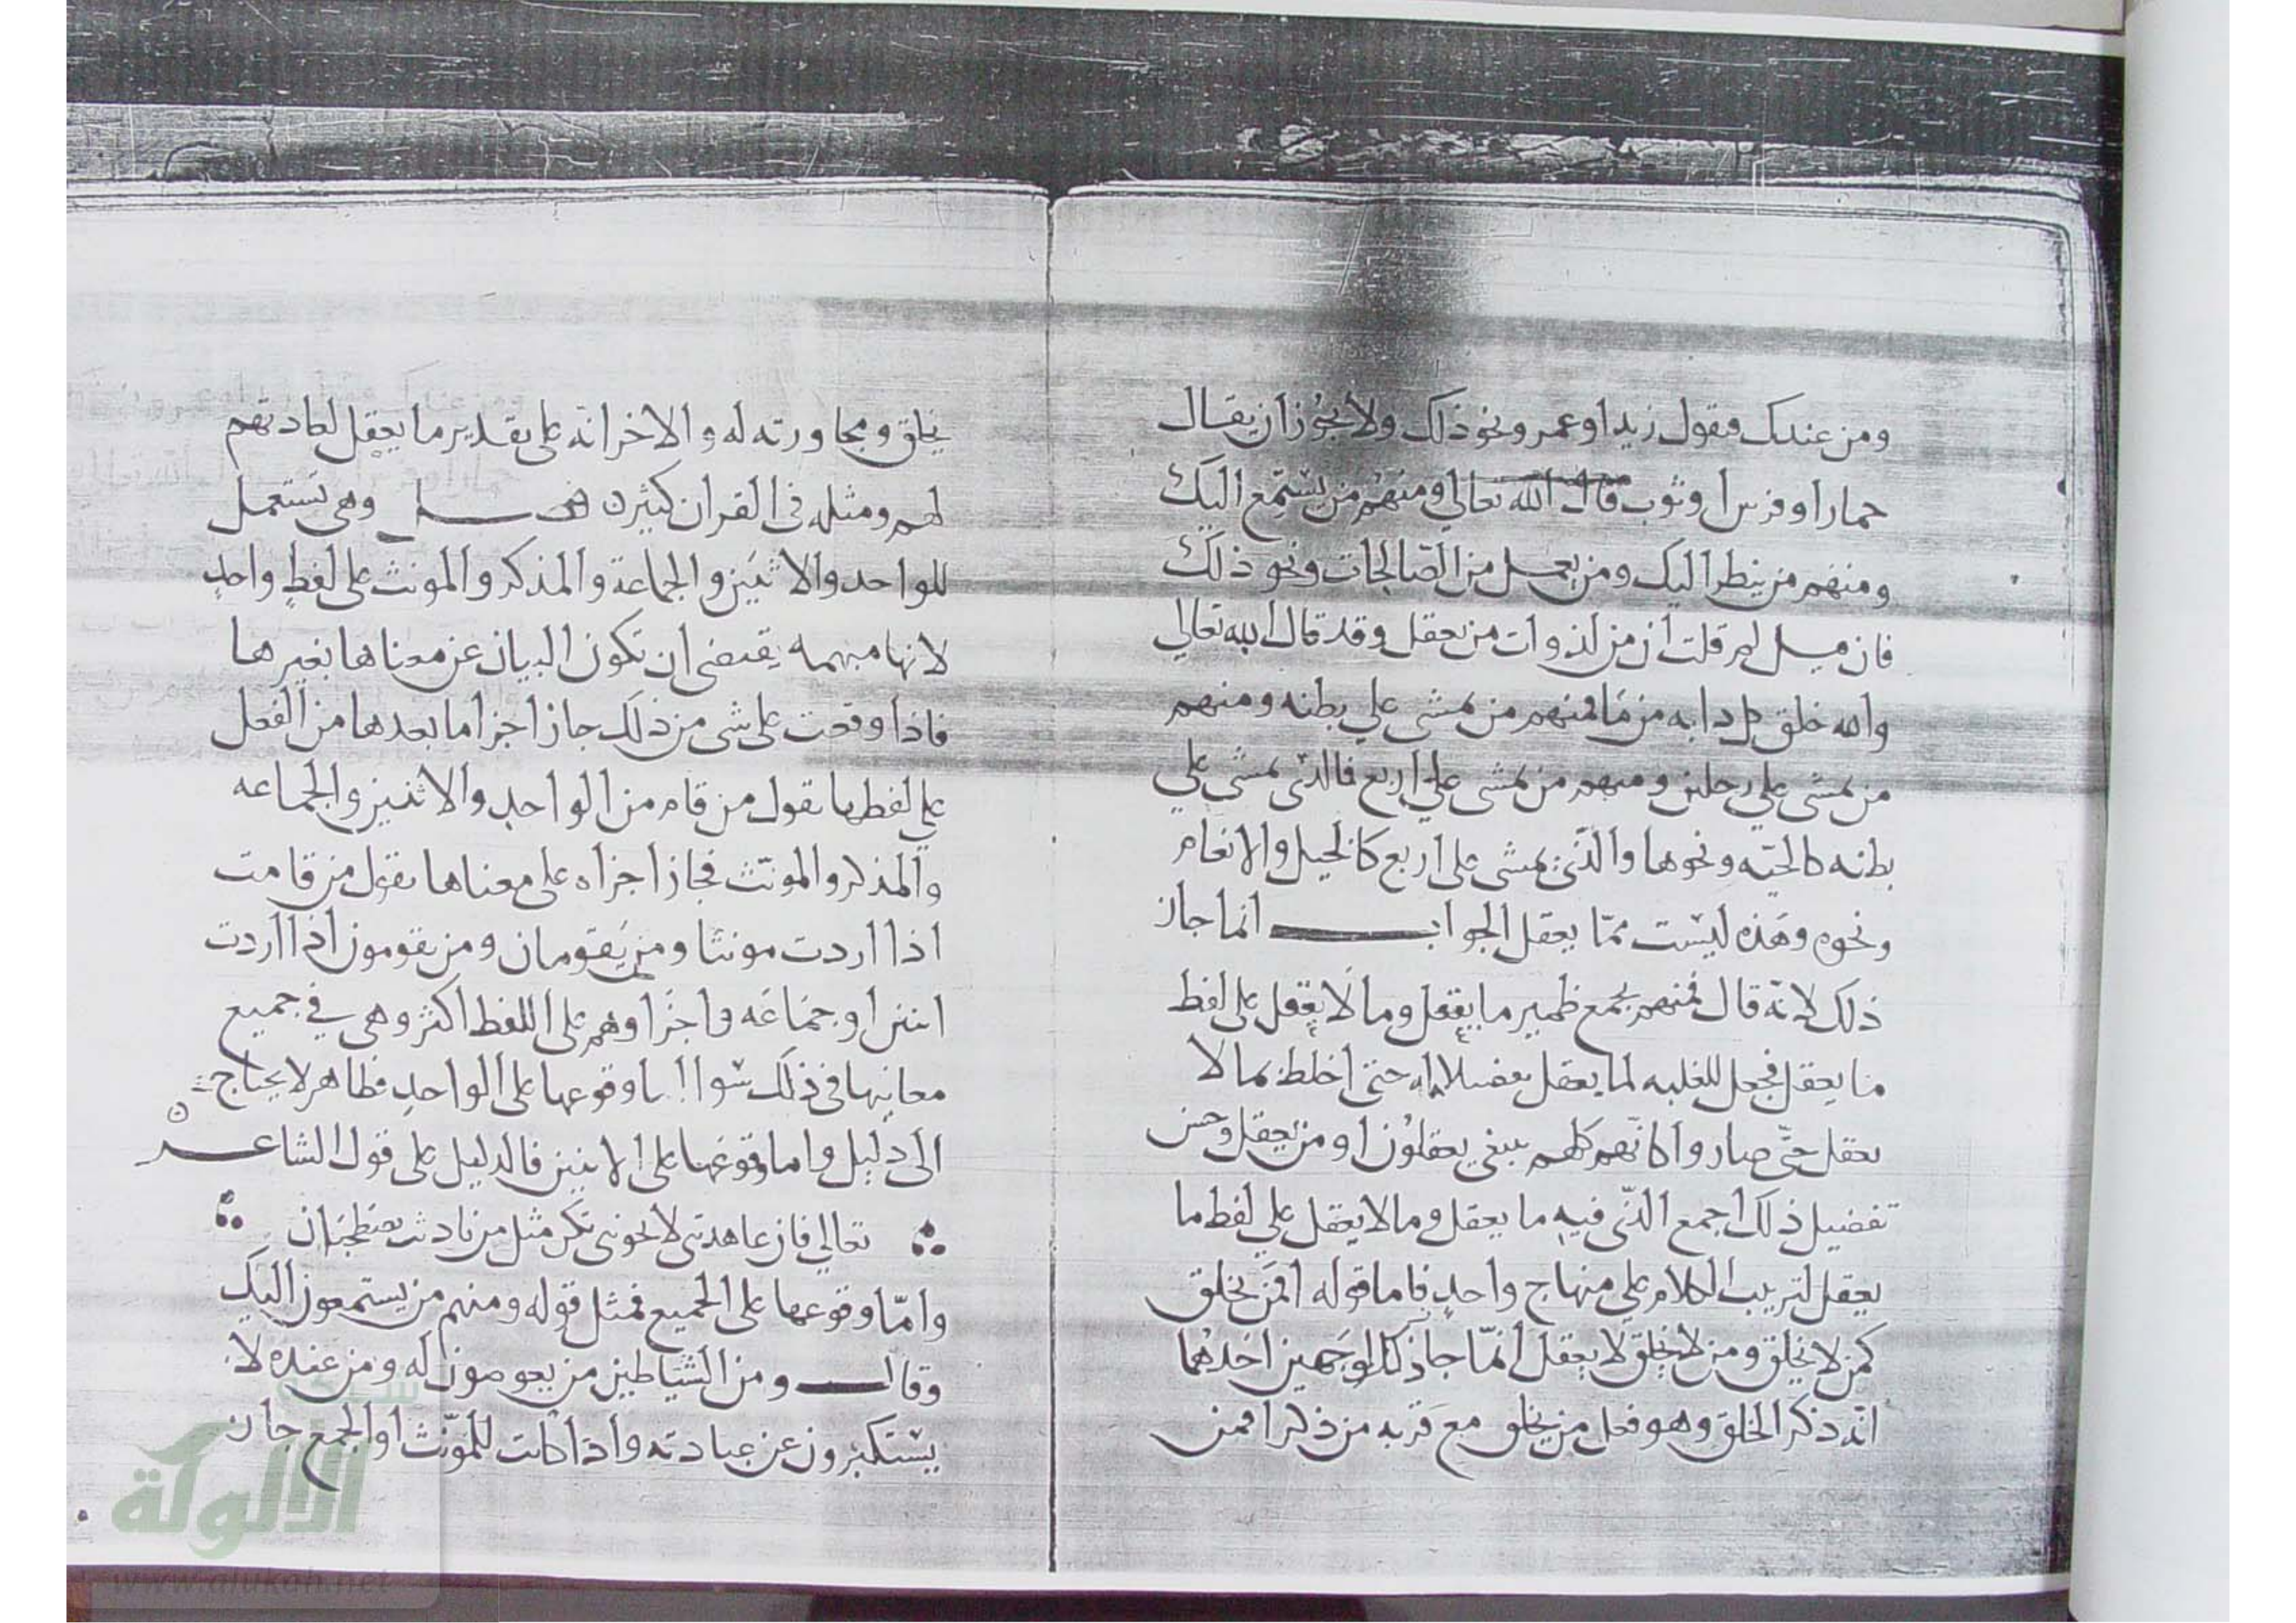 ومن عندك فتقول زيد اوعمرو ونحو ذلك ولا يجوز ان يقال
حمارا وفرس او ثوب قال الله تعالي ومنهم من يستمع اليك
ومنهم من ينظر اليك ومن يعمل من الصالحات ونحو ذلك
فان قيل لم قلت ان من لذوات من يعقل وقد قال الله تعالي
والله خلق كل دابه من ما فمنهم من يمشي علي بطنه ومنهم
من يمشي علي رجلين ومنهم من يمشي علي اربع فالذي يمشي علي
بطنه كالحيّه ونحوها والذي يمشي علي اربع كالخيل والانعام
ونحوه وهذه ليست ممّا يعقل الجواب انما جاز
ذلك لانّه قال فمنهم بجمع ظمير ما يعقل وما لا يعقل علي لفظ
ما يعقل فجعل للغلبه لما يعقل حتى اختلط بما لا
يعقل حتّى صاروا كانّهم كلهم يعقلون او من يعقل وحسن
تفضيل ذلك اجمع الذي فيه ما يعقل وما لا يعقل علي لفظ ما
يعقل لترتيب الكلام علي منهاج واحد فاما قوله افمن يخلق
كمن لا يخلق ومن لا يخلق لا يعقل انّما جاز ذلك لوجهين احدهما
انّه ذكر الخلق وهو فعل من يخلق مع قربه من ذكر افمن
يخلق ومجاورته له والاخر انّه على تقدير ما يعقل لعادتهم
لهم ومثله في القران كثير وهي تستعمل
للواحد والاثنين والجماعة والمذكر والمونث على لفظ واحد
لانها مبهمه يقتضي ان تكون البيان عن معناها بغيرها
فاذا وقعت على شي من ذلك جاز اجرا ما بعدها من الفعل
علي لفظها تقول من قام من الواحد والاثنين والجماعه
والمذكر والمونّث فجاز اجراه على معناها تقول من قامت
اذا اردت مونثا ومن يقومان ومن يقومون اذا اردت
اثنين او جماعه واجراوهم على اللفظ اكثر وهي في جميع
معانيها في ذلك سوا وقوعها على الواحد فظاهر لا يحتاج
الى دليل واما وقوعها على الاثنين فالدليل على قول الشاعر
تعالي فان عاهدتني لا تخونني نكن مثل من ياذئب يصطحبان
وامّا وقوعها على الجميع فمثل قوله ومنهم من يستمعون اليك
وقال ومن الشياطين من يغوصون له ومن عنده لا
يستكبرون عن عبادته واذا كانت للمونّث او الجمع جاز
شبكة
الألوكة
www.alukah.net